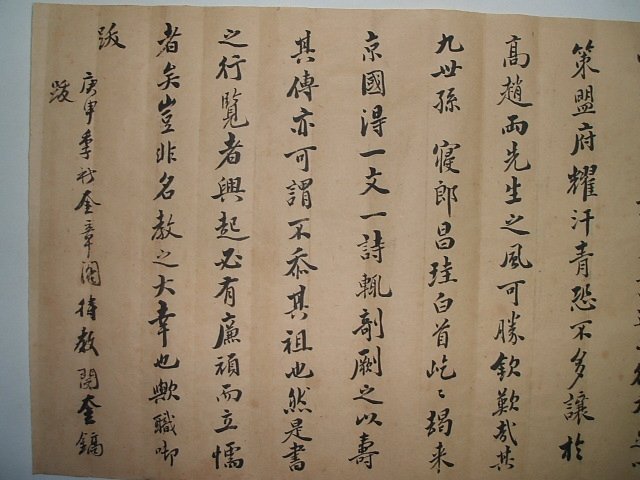 策盟府耀汗青恐不多讓於
高趙兩先生之風可勝欽歎哉其
九世孫 寢郎昌珪白首屹屹竭来
京國得一文一詩輒剞劂之以壽
其傳亦可謂不忝其祖也然是書
之行覽者興起必有廉頑而立懦
者矣豈非名敎之大幸也歟職
跋
庚申季 金章閣待敎閔奎鎬
跋